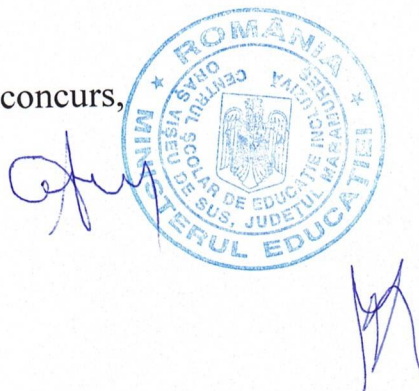 concurs,
ROMÂNIA
MINISTERUL EDUCAȚIEI
CENTRUL ȘCOLAR DE EDUCAȚIE INCLUZIVĂ
ORAȘ VIȘEU DE SUS, JUDEȚUL MARAMUREȘ